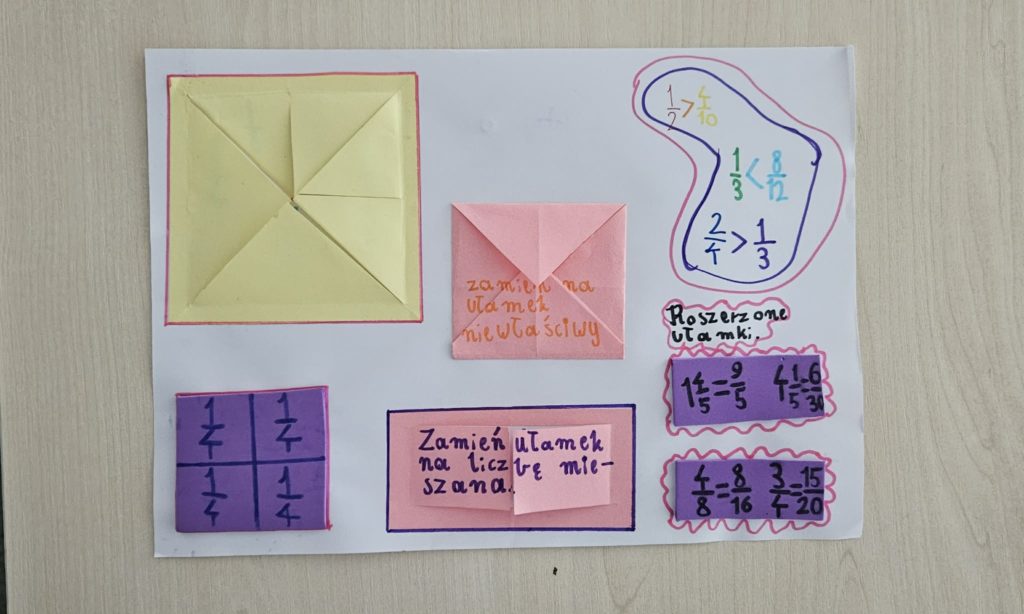 1/2 > 4/10
1/3 < 8/12
2/4 > 1/3
zamień na
ułamek
niewłaściwy
Roszerzone
ułamki.
1 4/5 = 9/5 4 1/5 = 6/30
4/8 = 8/16 3/4 = 15/20
1/4 1/4
1/4 1/4
Zamień ułamek
na liczbę mie-
szana.